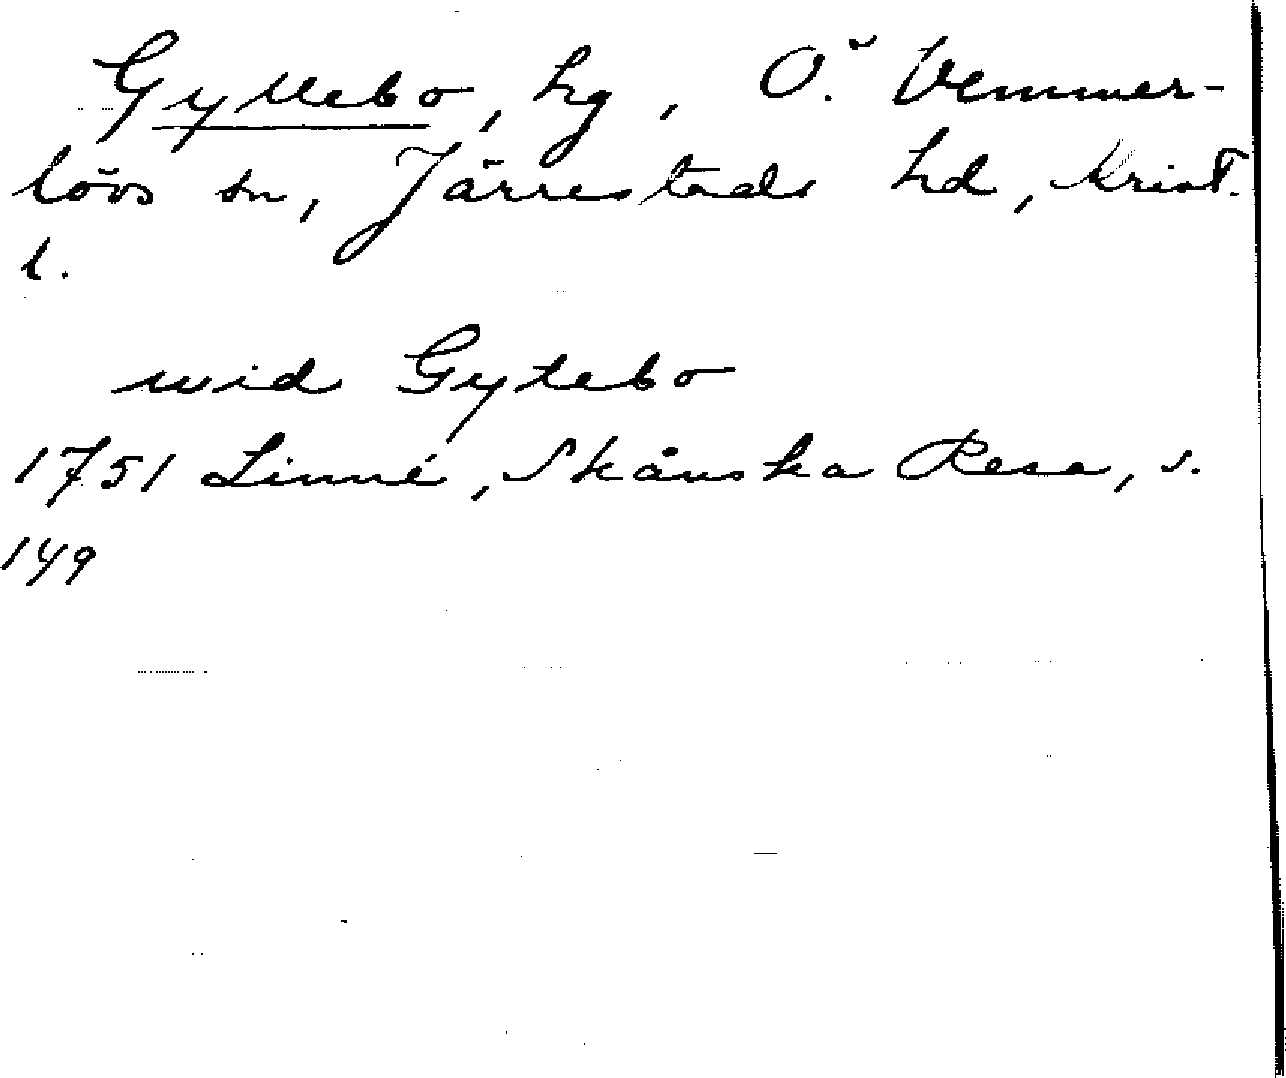 Gyllebo, hg, Ö. Vemmer-
lövs sn, Järrestads hd, Krist.
l.
wid Gylebo
1751 Linné, Skånska Resa, s.
149